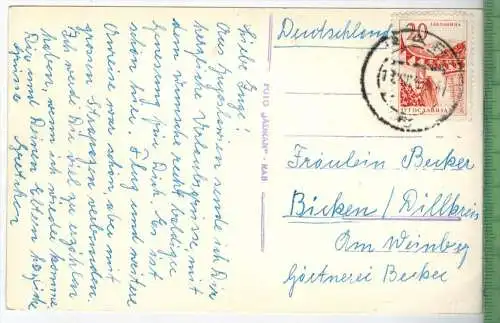 Liebe Inge!
Aus Jugoslawien sende ich Dir
herzliche Urlaubsgrüsse mit
dem Wunsche recht baldiger
Genesung für Dich. Es ist
schön hier. Flug und weitere
Anreise war schön aber mit
grossen Strapazen verbunden.
Ich werde Dir viel zu erzählen
haben, wenn ich wieder komme.
Dir und Deinen Eltern herzliche
Grüsse
Gretchen
FOTO "ADRIAN" - RAB
Deutschland
20
ЈАБЛАНИЦА
JUGOSLAVIJA
Fräulein Becker
Bicken / Dillkreis
Am Weinberg
Gärtnerei Becker